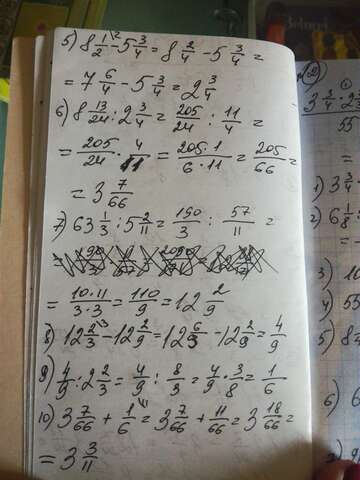 5) 8 1/2 - 5 3/4 = 8 2/4 - 5 3/4 =
= 7 6/4 - 5 3/4 = 2 3/4
6) 8 13/24 : 2 3/4 = 205/24 : 11/4 =
= 205/24 · 4/11 = 205·1/6·11 = 205/66 =
= 3 7/66
7) 63 1/3 : 5 2/11 = 190/3 : 57/11 =
= 10·11/3·3 = 110/9 = 12 2/9
8) 12 2/3 - 12 2/9 = 12 6/9 - 12 2/9 = 4/9
9) 4/9 : 2 2/3 = 4/9 : 8/3 = 4/9 · 3/8 = 1/6
10) 3 7/66 + 1/6 = 3 7/66 + 11/66 = 3 18/66 =
= 3 3/11